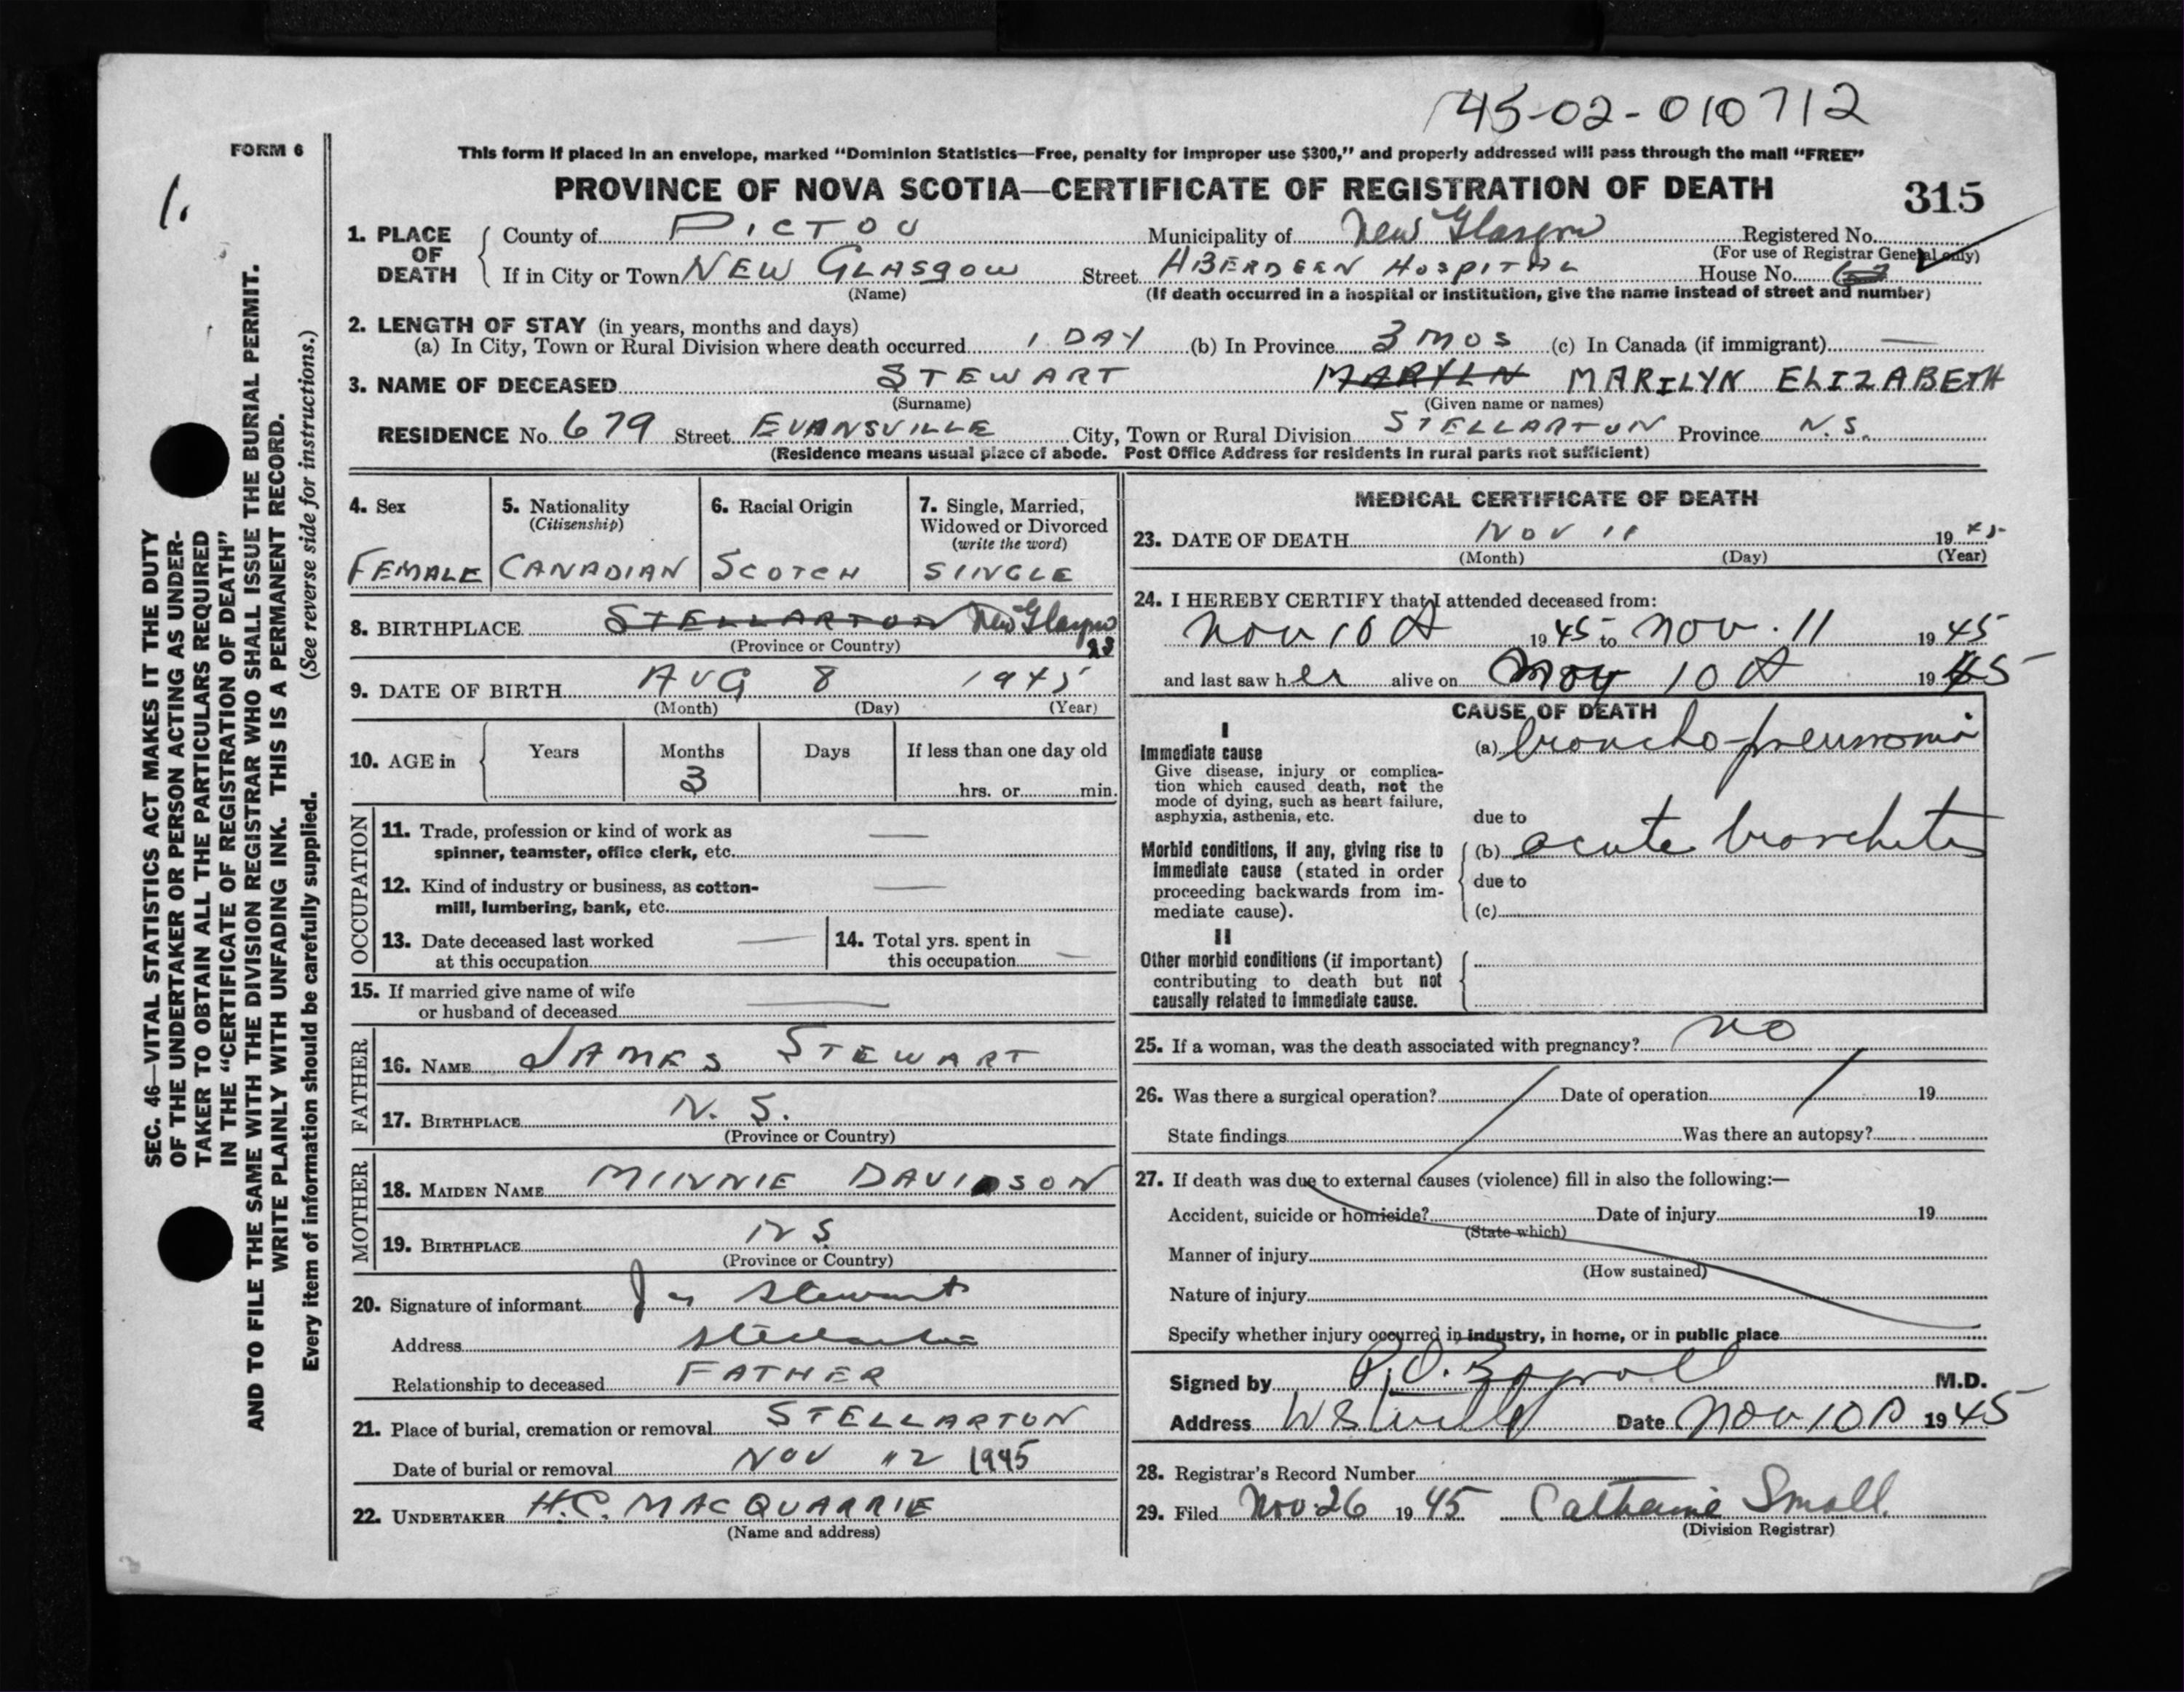 45-02-010712
FORM 6
1.
This form if placed in an envelope, marked "Dominion Statistics—Free, penalty for improper use $300," and properly addressed will pass through the mail "FREE"
PROVINCE OF NOVA SCOTIA—CERTIFICATE OF REGISTRATION OF DEATH
315
1. PLACE OF DEATH
County of PICTOU Municipality of New Glasgow Registered No.
(For use of Registrar General only)
If in City or Town NEW GLASGOW Street ABERDEEN HOSPITAL House No.
(Name) (If death occurred in a hospital or institution, give the name instead of street and number)
2. LENGTH OF STAY (in years, months and days)
(a) In City, Town or Rural Division where death occurred 1 DAY (b) In Province 3 MOS (c) In Canada (if immigrant) —
3. NAME OF DECEASED STEWART MARYLN MARILYN ELIZABETH
(Surname) (Given name or names)
RESIDENCE No. 679 Street EVANSVILLE City, Town or Rural Division STELLARTON Province N.S.
(Residence means usual place of abode. Post Office Address for residents in rural parts not sufficient)
4. Sex
FEMALE
5. Nationality
(Citizenship)
CANADIAN
6. Racial Origin
SCOTCH
7. Single, Married,
Widowed or Divorced
(write the word)
SINGLE
8. BIRTHPLACE STELLARTON New Glasgow
(Province or Country)
9. DATE OF BIRTH AUG 8 1945
(Month) (Day) (Year)
10. AGE in Years Months Days If less than one day old
3 hrs. or min.
OCCUPATION
11. Trade, profession or kind of work as —
spinner, teamster, office clerk, etc.
12. Kind of industry or business, as cotton- —
mill, lumbering, bank, etc.
13. Date deceased last worked —
at this occupation
14. Total yrs. spent in
this occupation —
15. If married give name of wife
or husband of deceased —
FATHER
16. NAME JAMES STEWART
17. BIRTHPLACE N. S.
(Province or Country)
MOTHER
18. MAIDEN NAME MINNIE DAVIDSON
19. BIRTHPLACE N S.
(Province or Country)
20. Signature of informant Jas Stewart
Address Stellarton
Relationship to deceased FATHER
21. Place of burial, cremation or removal STELLARTON
Date of burial or removal NOV 12 1945
22. UNDERTAKER H.C. MACQUARRIE
(Name and address)
MEDICAL CERTIFICATE OF DEATH
23. DATE OF DEATH NOV 11 1945
(Month) (Day) (Year)
24. I HEREBY CERTIFY that I attended deceased from:
Nov 10 1945 to Nov. 11 1945
and last saw her alive on Nov 10 1945
CAUSE OF DEATH
I
Immediate cause
Give disease, injury or complica-
tion which caused death, not the
mode of dying, such as heart failure,
asphyxia, asthenia, etc.
(a) broncho-pneumonia
due to
Morbid conditions, if any, giving rise to
immediate cause (stated in order
proceeding backwards from im-
mediate cause).
(b) acute bronchitis
due to
(c)
II
Other morbid conditions (if important)
contributing to death but not
causally related to immediate cause.
25. If a woman, was the death associated with pregnancy? no
26. Was there a surgical operation? Date of operation 19
State findings Was there an autopsy?
27. If death was due to external causes (violence) fill in also the following:—
Accident, suicide or homicide? Date of injury 19
(State which)
Manner of injury
(How sustained)
Nature of injury
Specify whether injury occurred in industry, in home, or in public place
Signed by M.D.
Address Date Nov 10 1945
28. Registrar's Record Number
29. Filed Nov. 26 1945 Catherine Small.
(Division Registrar)
SEC. 46—VITAL STATISTICS ACT MAKES IT THE DUTY
OF THE UNDERTAKER OR PERSON ACTING AS UNDER-
TAKER TO OBTAIN ALL THE PARTICULARS REQUIRED
IN THE "CERTIFICATE OF REGISTRATION OF DEATH"
AND TO FILE THE SAME WITH THE DIVISION REGISTRAR WHO SHALL ISSUE THE BURIAL PERMIT.
WRITE PLAINLY WITH UNFADING INK. THIS IS A PERMANENT RECORD.
Every item of information should be carefully supplied. (See reverse side for instructions.)